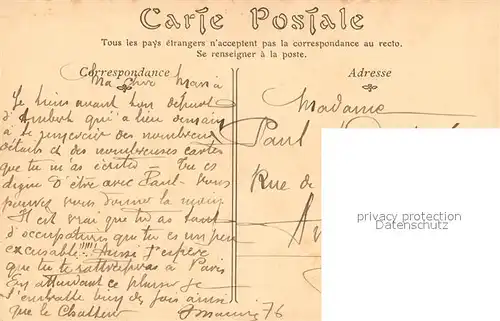 Carte Postale
Tous les pays étrangers n'acceptent pas la correspondance au recto.
Se renseigner à la poste.
Correspondance
Adresse
Ma chère Maria
Je tiens avant ton départ
d'Ambert qui a lieu demain
à te remercier des nombreux
détails et des nombreuses cartes
que tu m'as écrites – Tu es
digne d'être avec Paul – vous
pouvez vous donner la main
Il est vrai que tu as tant
d'occupations que tu es un peu
excusable !!!! Aussi j'espère
que tu te rattraperas à Paris
En attendant ce plaisir je
t'embrasse bien des fois ainsi
que le
76
Madame
Paul
Rue de
privacy protection
Datenschutz